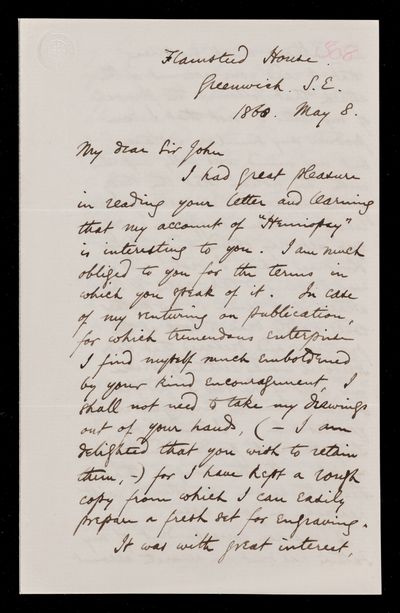 868
Flamsteed House.
Greenwich. S.E.
1868. May 8.
My dear Sir John
I had great pleasure
in reading your letter and learning
that my account of "Hemiopsy"
is interesting to you. I am much
obliged to you for the terms in
which you speak of it. In case
of my venturing on publication,
for which tremendous enterprise
I find myself much emboldened
by your kind encouragement, I
shall not need to take my drawings
out of your hands, (– I am
delighted that you wish to retain
them, –) for I have kept a rough
copy from which I can easily
prepare a fresh set for engraving.
It was with great interest,